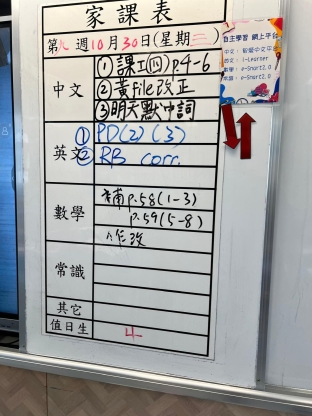 家課表
第九週10月30日(星期三)
中文
①課工(四)p.4-6
②黃File改正
③明天默中詞
英文
①PD(2)(3)
②RB corr.
數學
補p.58(1-3)
p.59(5-8)
作改
常識
其它
值日生
4
自主學習 網上平台
i-Learner
e-Smart2.0
e-Smart2.0